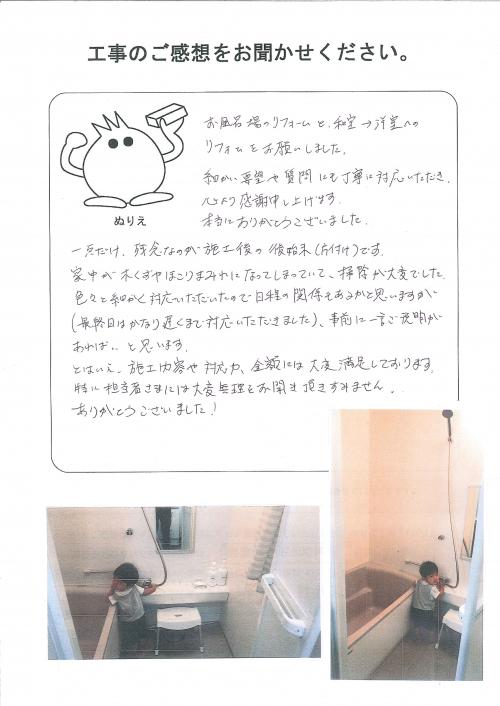 工事のご感想をお聞かせください。
ぬりえ
お風呂場のリフォームと、和室→洋室への
リフォームをお願いしました。
細かい要望や質問にも丁寧に対応いただき、
心より感謝申し上げます。
本当にありがとうございました。
一点だけ、残念なのが施工後の後始末(片付け)です。
家中が木くずやほこりまみれになってしまっていて、掃除が大変でした。
色々と細かく対応いただいたので日程の関係もあるかと思いますが
(最終日はかなり遅くまで対応いただきました)、事前に一言ご説明が
あれば‥と思います。
とはいえ、施工内容や対応力、金額には大変満足しております。
特に担当者さまには大変無理をお聞き頂きすみません。
ありがとうございました!